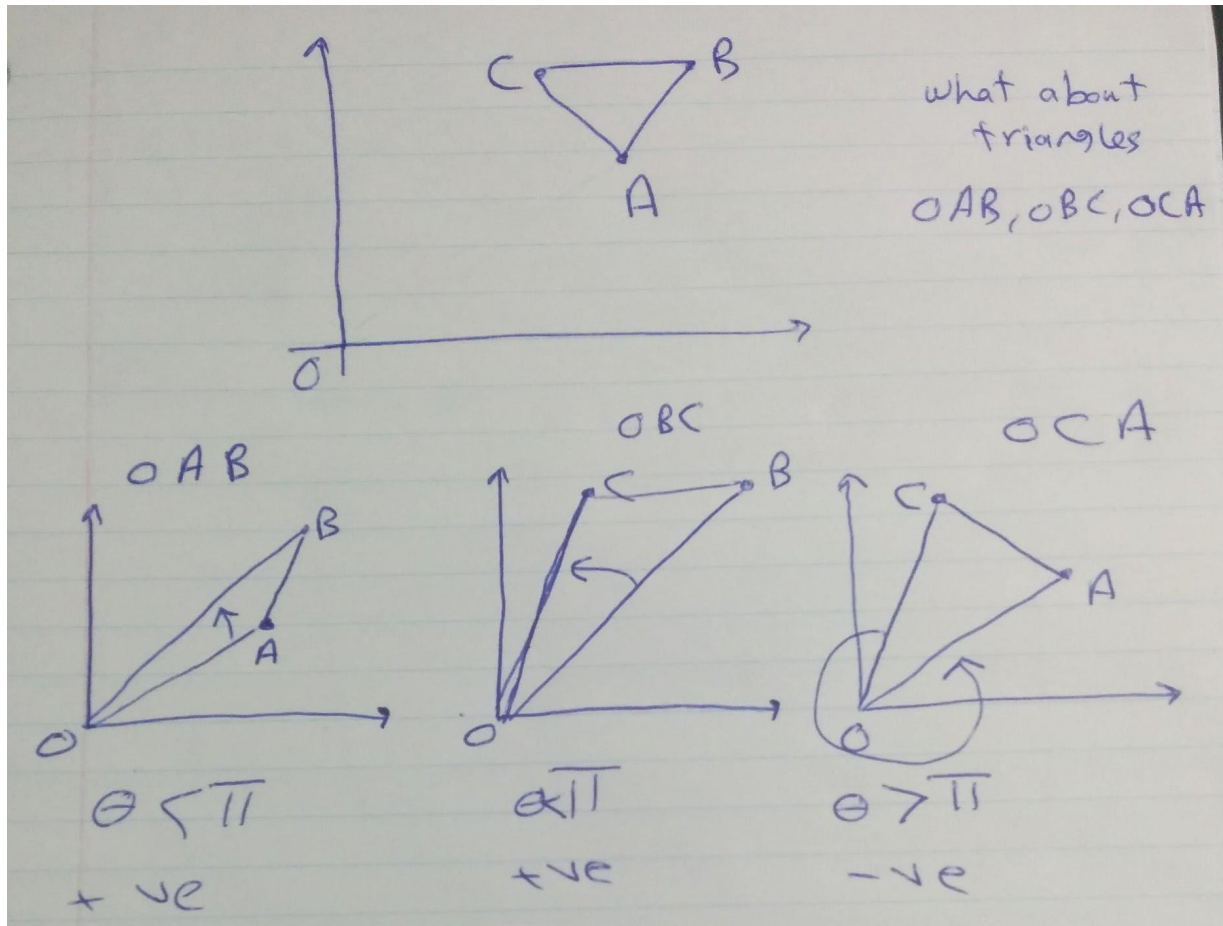 C
B
A
O
what about
triangles
OAB, OBC, OCA
OAB
B
A
O
θ < π
+ ve
OBC
C
B
O
θ<π
+ve
OCA
C
A
O
θ > π
- ve